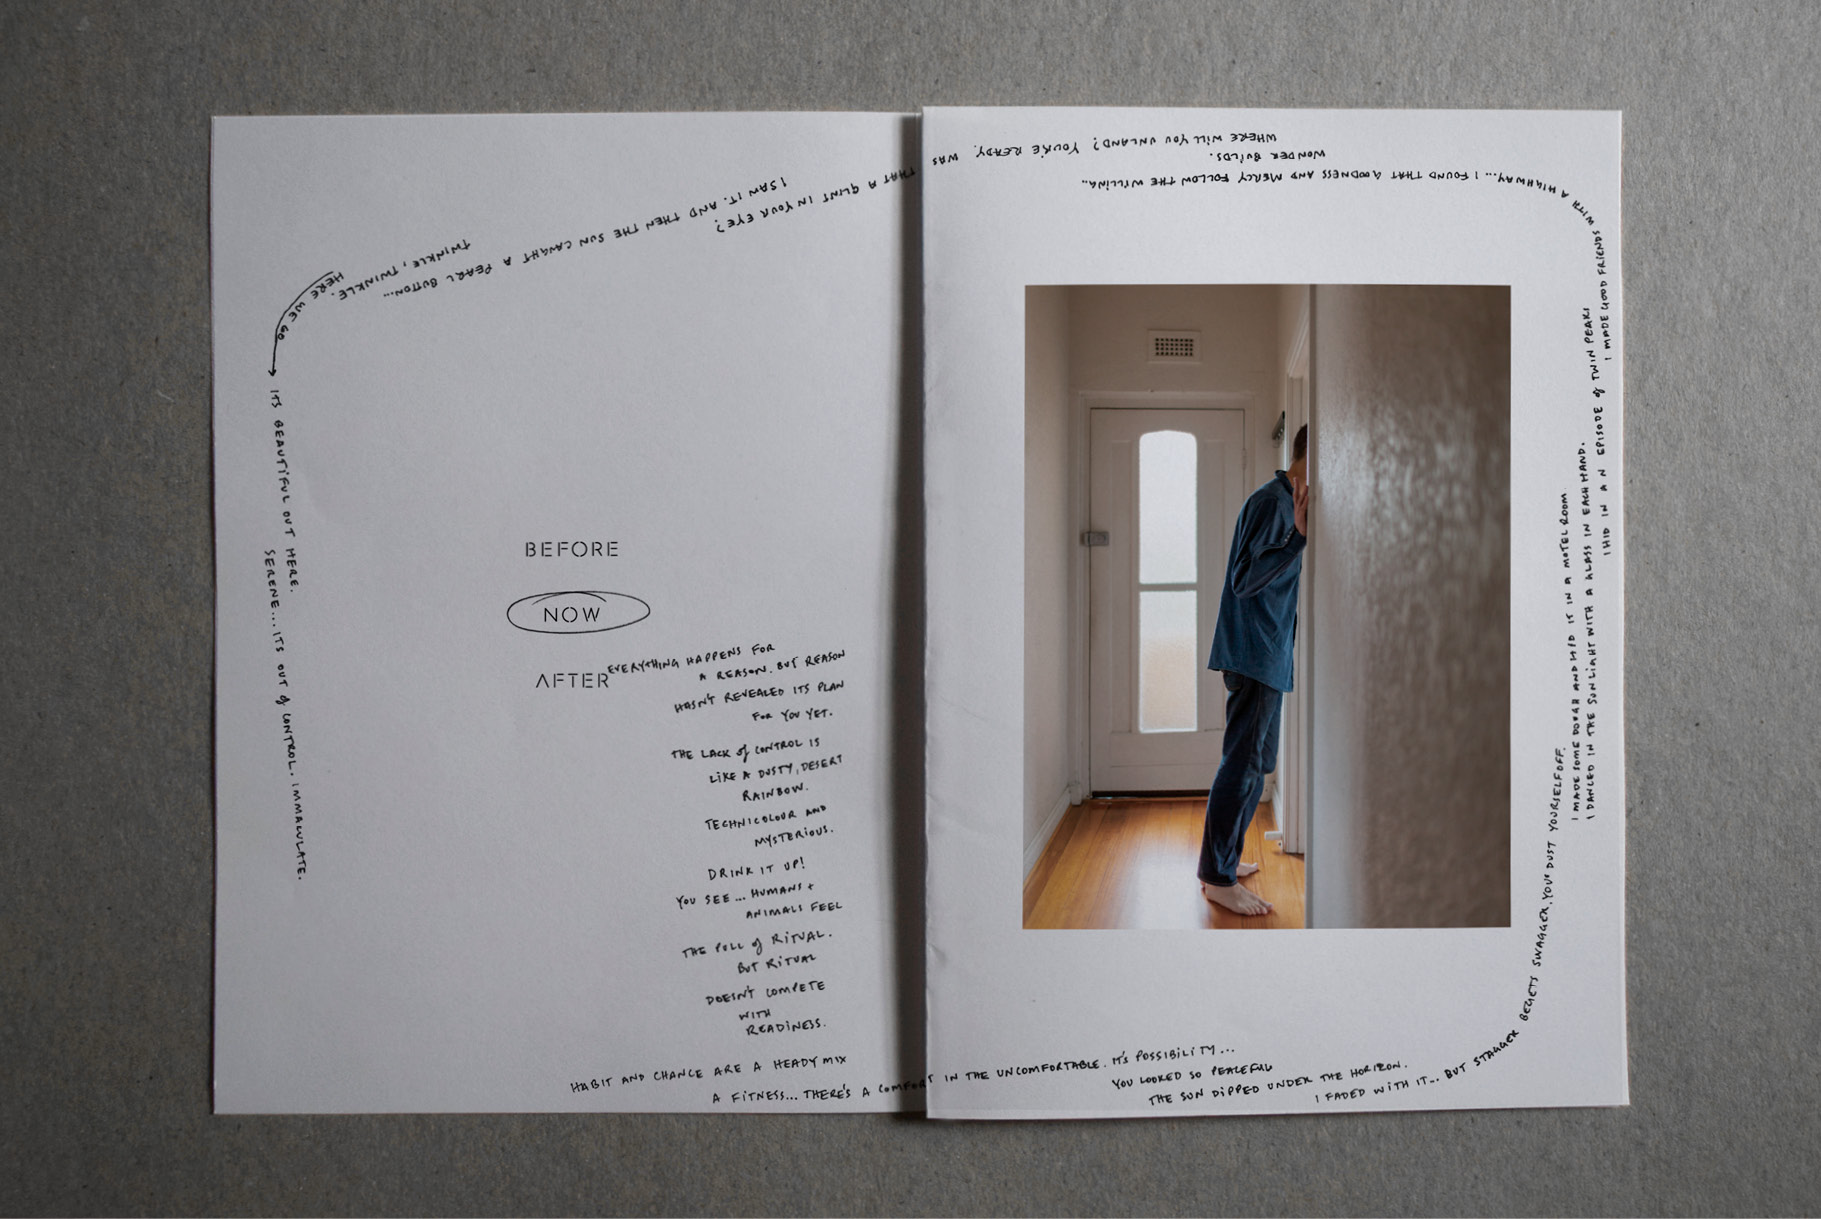 BEFORE
NOW
AFTER
EVERYTHING HAPPENS FOR
A REASON. BUT REASON
HASN'T REVEALED ITS PLAN
FOR YOU YET.
THE LACK of CONTROL IS
LIKE A DUSTY, DESERT
RAINBOW.
TECHNICOLOUR AND
MYSTERIOUS.
DRINK IT UP!
YOU SEE... HUMANS +
ANIMALS FEEL
THE PULL of RITUAL.
BUT RITUAL
DOESN'T COMPETE
WITH
READINESS.
HABIT AND CHANCE ARE A HEADY MIX
A FITNESS... THERE'S A COMFORT IN THE UNCOMFORTABLE. IT'S POSSIBILITY...
YOU LOOKED SO PEACEFUL
THE SUN DIPPED UNDER THE HORIZON.
I FADED WITH IT... BUT STAGGER BEGETS SWAGGER. YOU DUST YOURSELF OFF.
I MADE SOME DOUGH AND HID IT IN A MOTEL ROOM
I DANCED IN THE SUNLIGHT WITH A GLASS IN EACH HAND.
I HID IN AN EPISODE of TWIN PEAKS
I MADE GOOD FRIENDS WITH A HIGHWAY... I FOUND THAT GOODNESS AND MERCY FOLLOW THE WILLING..
WONDER BUILDS.
WHERE WILL YOU UNLAND? YOU'RE READY. WAS THAT A GLINT IN YOUR EYE?
I SAW IT. AND THEN THE SUN CAUGHT A PEARL BUTTON...
TWINKLE, TWINKLE.
HERE WE GO
ITS BEAUTIFUL OUT HERE.
SERENE... ITS OUT of CONTROL. IMMACULATE.